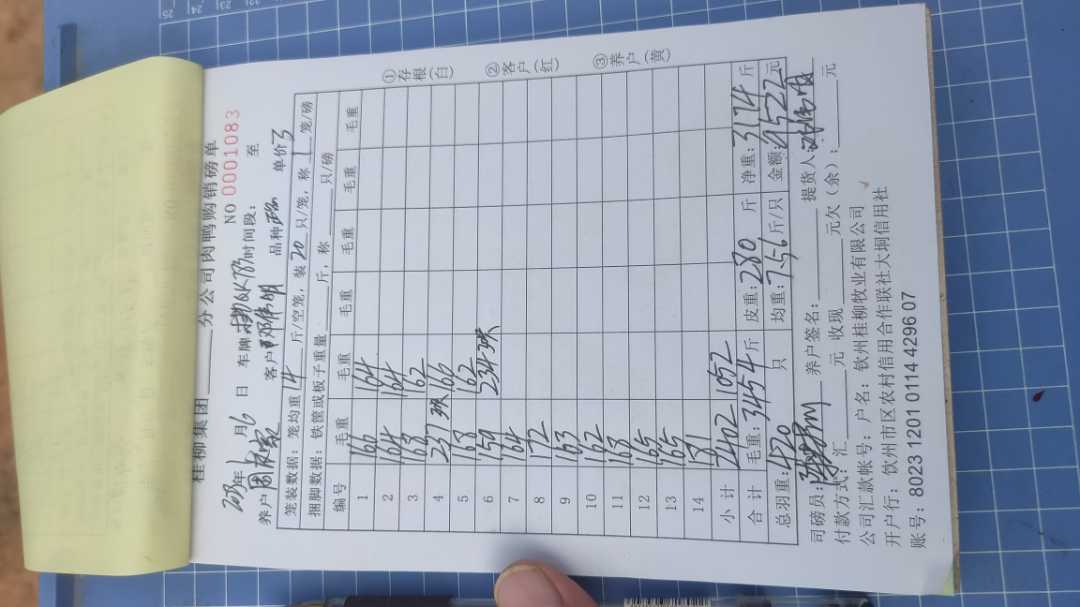 桂柳集团 分公司肉鸭购销磅单
NO 0001083
2023年1月6日 车牌 时间段: 至
养户 客户 邓伟明 品种 单价 3
笼装数据: 笼均重 14 斤/空笼, 装 20 只/笼, 称 1 笼/磅
捆脚数据: 铁筐或板子重量 斤, 称 只/磅
编号 毛重 毛重 毛重 毛重 毛重 毛重
1 166 164
2 164 164
3 163 162
4 237 160
5 168 162
6 159 234
7 164
8 172
9 163
10 162
11 168
12 165
13 165
14 181
小计 2402 1052
合计 毛重: 3454 斤 皮重: 280 斤 净重: 3174 斤
总羽重: 420 只 均重: 7.56 斤/只 金额: 9522 元
司磅员: 养户签名: 提货人
付款方式: 汇 元 收现 元欠(余): 元
公司汇款帐号: 户名: 钦州桂柳牧业有限公司
开户行: 钦州市区农村信用合作联社大垌信用社
账号: 8023 1201 0114 4296 07
①存根(白) ②客户(红) ③养户(黄)